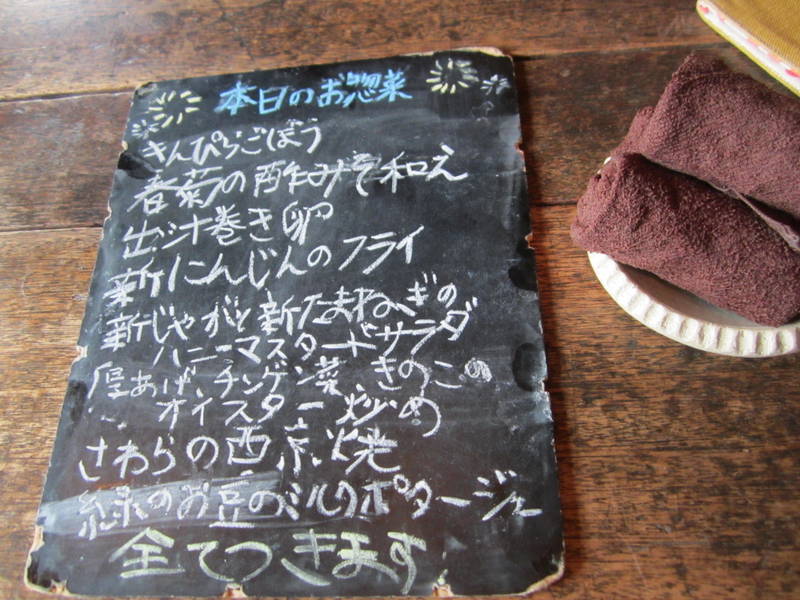 本日のお惣菜
きんぴらごぼう
春菊の酢みそ和え
出汁巻き卵
新にんじんのフライ
新じゃがと新たまねぎの
ハニーマスタードサラダ
厚あげ、チンゲン菜、きのこの
オイスター炒め
さわらの西京焼
緑のお豆のミルクポタージュ
全てつきます